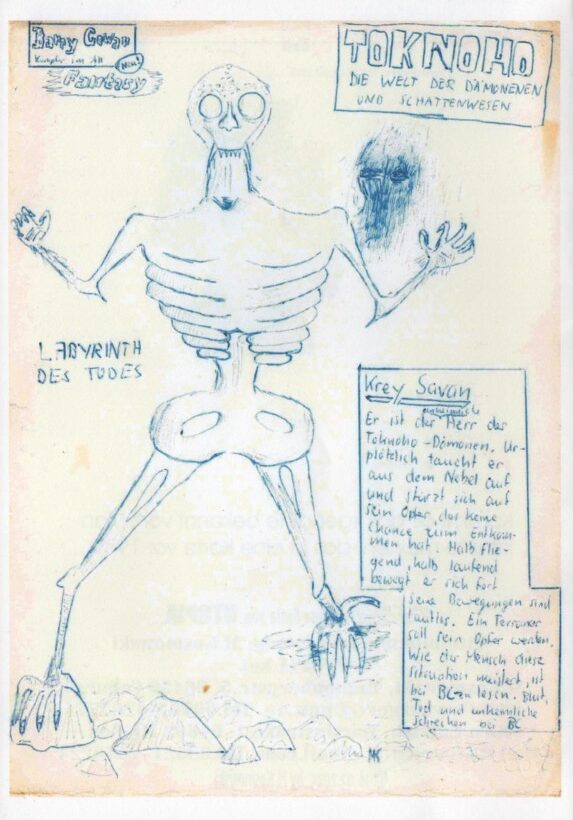 Barry Gowan
Kämpfer im All
Neu!
Fantasy
TOKNOHO
DIE WELT DER DÄMONENEN
UND SCHATTENWESEN
LABYRINTH
DES TODES
Krey Savan
unheimliche
Er ist der Herr der
Toknoho-Dämonen. Ur-
plötzlich taucht er
aus dem Nebel auf
und stürzt sich auf
sein Opfer, das keine
Chance zum Entkom-
men hat. Halb flie-
gend, halb laufend
bewegt er sich fort
Seine Bewegungen sind
lautlos. Ein Terraner
soll sein Opfer werden.
Wie der Mensch diese
Situation meistert, ist
bei BG zu lesen. Blut,
Tod und unheimliche
Schrecken bei BG